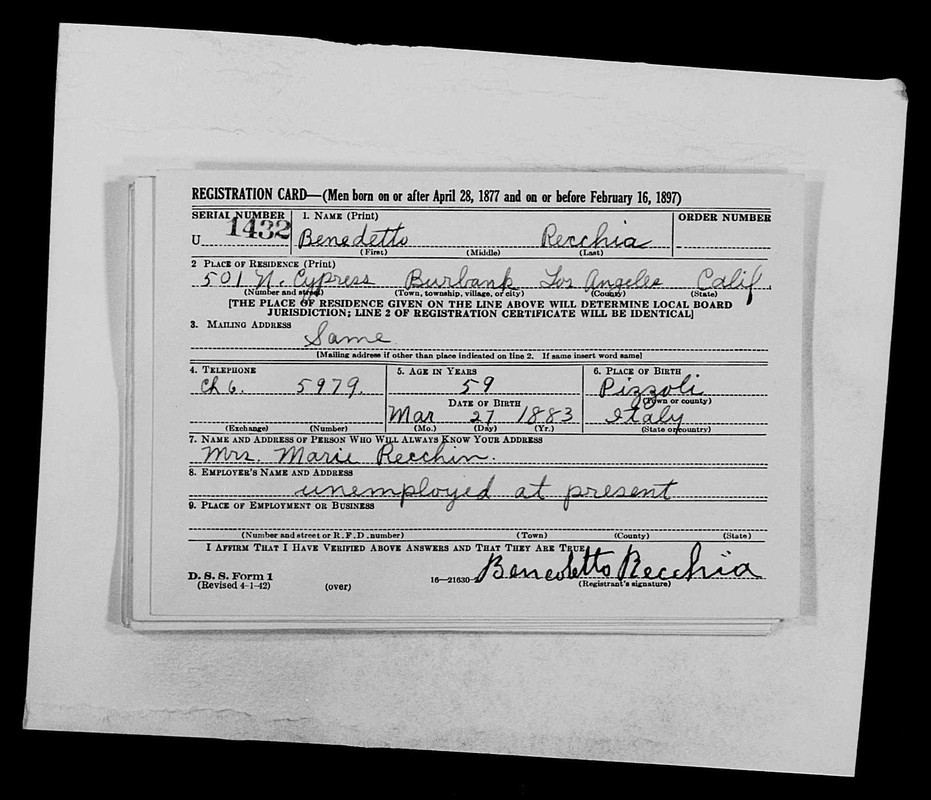 REGISTRATION CARD—(Men born on or after April 28, 1877 and on or before February 16, 1897)
SERIAL NUMBER 1. NAME (Print) ORDER NUMBER
U 1432 Benedetto Recchia
(First) (Middle) (Last)
2 PLACE OF RESIDENCE (Print)
501 N. Cypress Burbank Los Angeles Calif.
(Number and street) (Town, township, village, or city) (County) (State)
[THE PLACE OF RESIDENCE GIVEN ON THE LINE ABOVE WILL DETERMINE LOCAL BOARD
JURISDICTION; LINE 2 OF REGISTRATION CERTIFICATE WILL BE IDENTICAL]
3. MAILING ADDRESS
Same
[Mailing address if other than place indicated on line 2. If same insert word same]
4. TELEPHONE 5. AGE IN YEARS 6. PLACE OF BIRTH
Ch 6. 5979. 59 Pizzoli
DATE OF BIRTH (Town or county)
Mar 27 1883 Italy
(Exchange) (Number) (Mo.) (Day) (Yr.) (State or country)
7. NAME AND ADDRESS OF PERSON WHO WILL ALWAYS KNOW YOUR ADDRESS
Mrs. Marie Recchin.
8. EMPLOYER'S NAME AND ADDRESS
unemployed at present
9. PLACE OF EMPLOYMENT OR BUSINESS
(Number and street or R. F. D. number) (Town) (County) (State)
I AFFIRM THAT I HAVE VERIFIED ABOVE ANSWERS AND THAT THEY ARE TRUE.
Benedetto Recchia
D. S. S. Form 1 16—21630
(Revised 4-1-42) (over) (Registrant's signature)